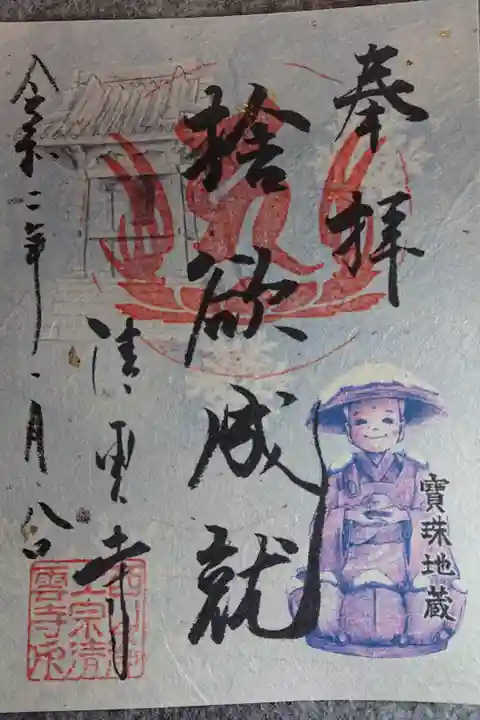 奉拝
捨欲成就
寶珠地蔵
令和二年一月八日
清雲寺
西山浄
土宗清
雲寺印